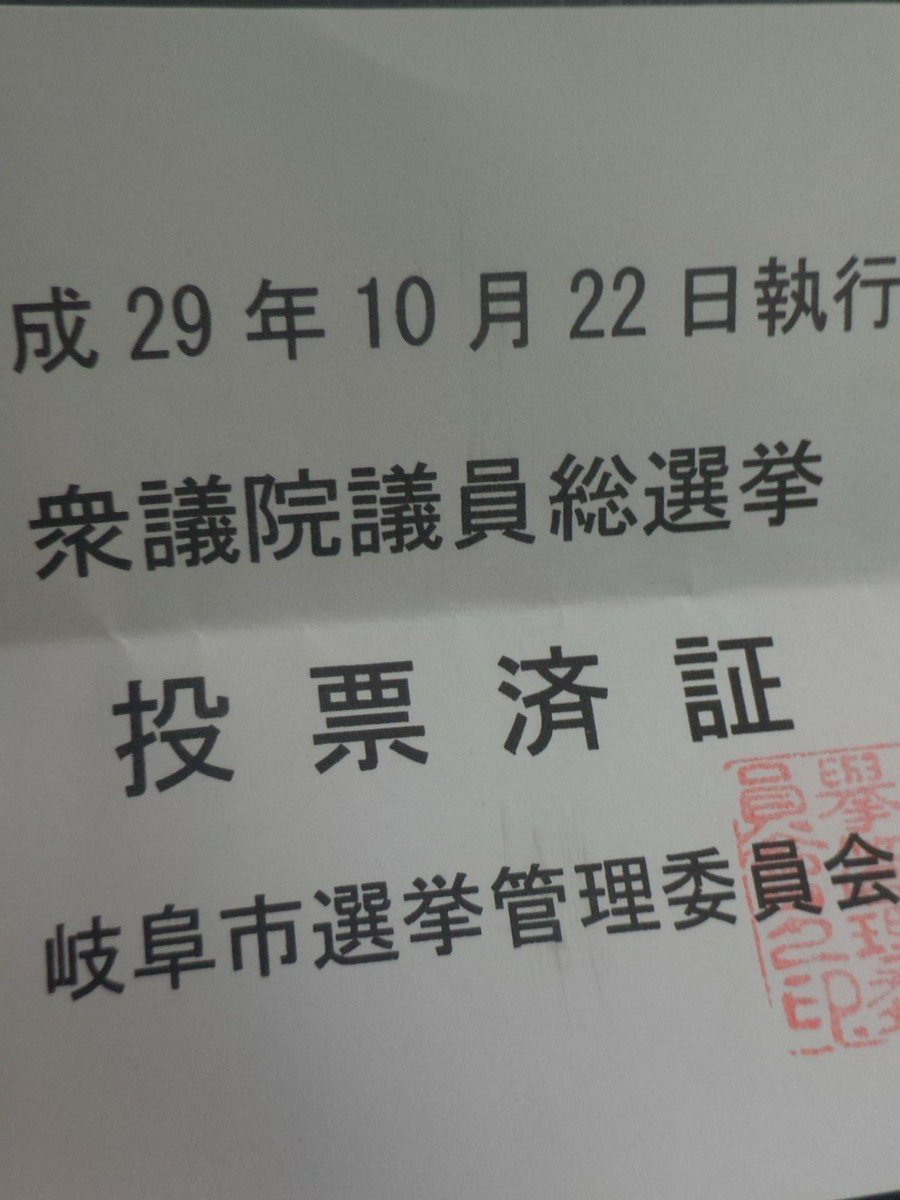 成29年10月22日執行
衆議院議員総選挙
投票済証
岐阜市選挙管理委員会